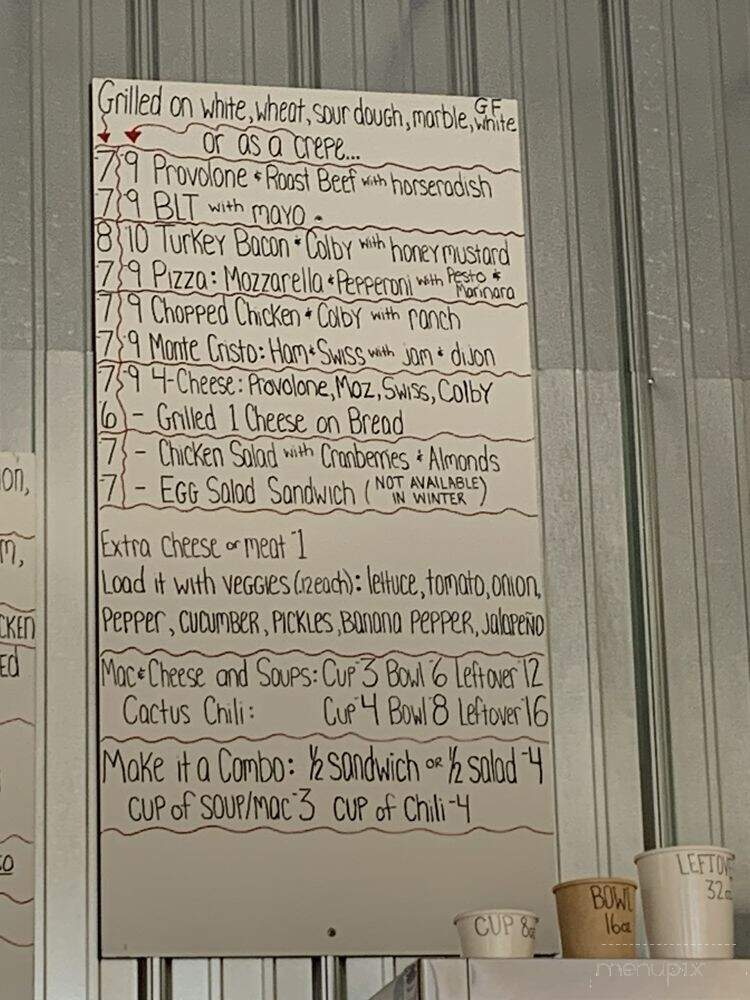 Grilled on white, wheat, sour dough, marble, GF white
or as a crepe...
7 9 Provolone & Roast Beef with horseradish
7 9 BLT with mayo.
8 10 Turkey Bacon & Colby with honey mustard
7 9 Pizza: Mozzarella & Pepperoni with Pesto & Marinara
7 9 Chopped Chicken & Colby with ranch
7 9 Monte Cristo: Ham & Swiss with jam & dijon
7 9 4-Cheese: Provolone, Moz, Swiss, Colby
6 - Grilled 1 Cheese on Bread
7 - Chicken Salad with Cranberries & Almonds
7 - EGG Salad Sandwich (NOT AVAILABLE IN WINTER)
Extra cheese or meat -1
Load it with veggies (.12 each): lettuce, tomato, onion,
PEPPER, CUCUMBER, PICKLES, Banana PEPPER, Jalapeño
Mac & Cheese and Soups: Cup-3 Bowl-6 Leftover-12
Cactus Chili: Cup-4 Bowl-8 Leftover-16
Make it a Combo: ½ sandwich OR ½ salad -4
CUP of SOUP/Mac-3 CUP of Chili-4
on,
m,
CKEN
ED
CUP 8oz
BOWL
16oz
LEFTOV
32oz
menupix